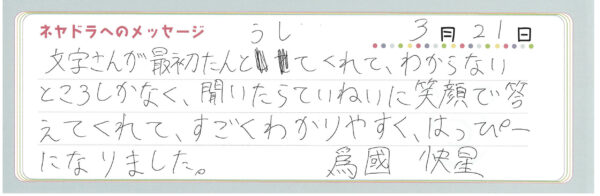 ネヤドラへのメッセージ 3月21日
うし
文字さんが最初たんと てくれて、わからない
ところしかなく、聞いたらていねいに笑顔で答
えてくれて、すごくわかりやすく、はっぴー
になりました。 爲國 快星